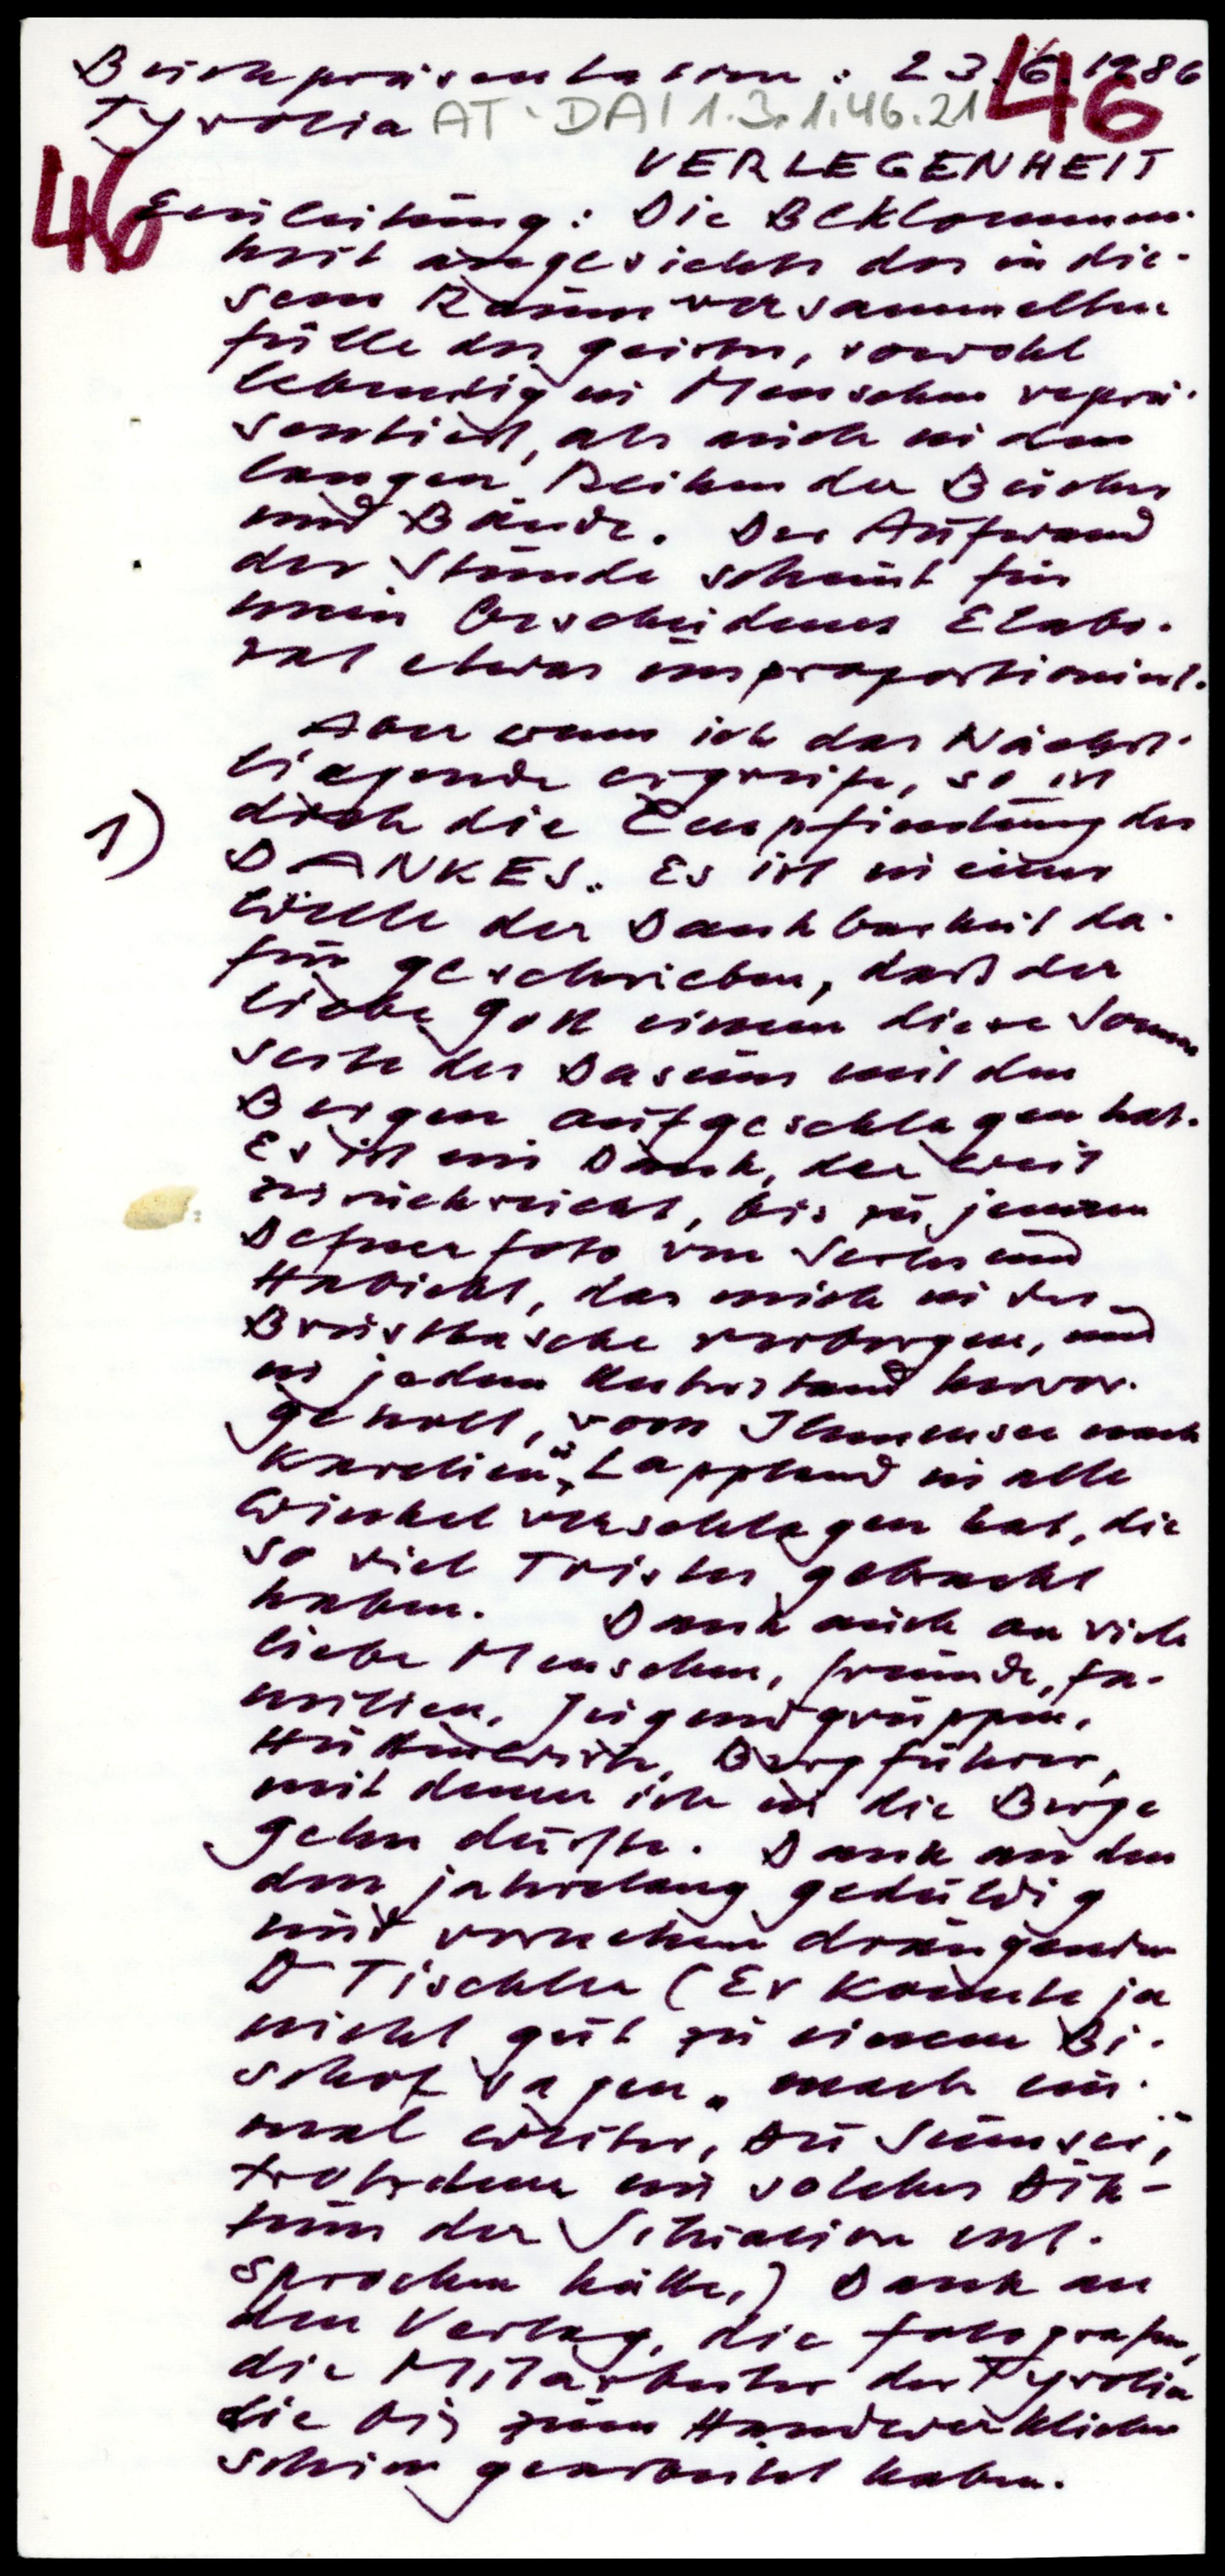 Buchpräsentation: 23.6.1986
46
Tyrolia AT-DAI 1.3.1.46.21
VERLEGENHEIT
46
Einleitung: Die Beklommen-
heit angesichts der in die-
sem Raum versammelten
Fülle des Geistes, sowohl
lebendig in Menschen reprä-
sentiert, als auch in den
langen Reihen der Bücher
und Bände. Der Aufwand
der Stunde scheint für
mein bescheidenes Elabo-
rat etwas unproportioniert.
Aber wenn ich das Nächst-
liegende ergreife, so ist
1) doch die Empfindung des
DANKES. Es ist in einer
Welle der Dankbarkeit da-
für geschrieben, dass der
liebe Gott einem diese Sonnen
seite des Daseins mit den
Bergen aufgeschlagen hat.
Es ist ein Dank, der weit
zurückreicht, bis zu jenem
Defnerfoto von Serles und
Habicht, das mich in der
Brusttasche verborgen, und
in jedem Unterstand hervor-
geholt, vom Ilmensee nach
Karelien u. Lappland in alle
Winkel verschlagen hat, die
so viel Tristes gebracht
haben. Dank auch an viele
liebe Menschen, Freunde, Fa-
milien, Jugendgruppen,
Hüttenwirte, Bergführer,
mit denen ich in die Berge
gehn durfte. Dank an den
den jahrelang geduldig
und vornehm drängenden
D Tischler (Er konnte ja
nicht gut zu einem Bi-
schof sagen „mach ein-
mal weiter, Du Sumser",
trotzdem ein solches Dik-
tum der Situation ent-
sprochen hätte.) Dank an
den Verlag, die Fotografen,
die Mitarbeiter der Tyrolia
die bis zum Handwerklichen
schön gearbeitet haben.